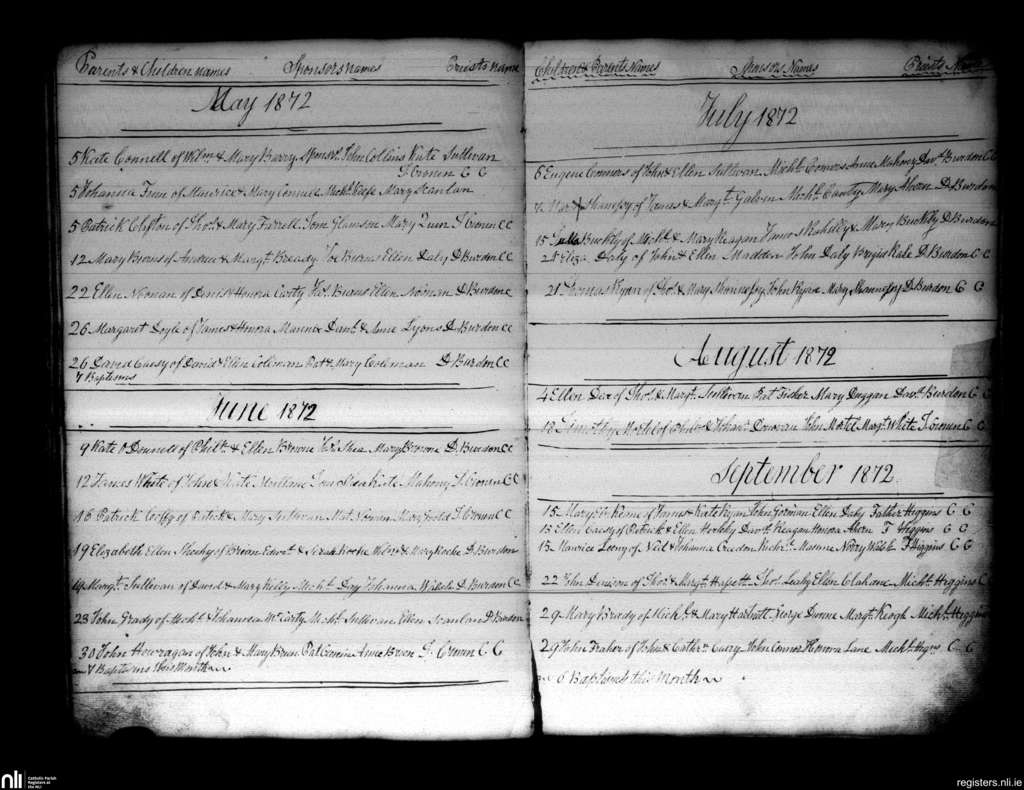 Parents & Children names Sponsors names Priests name
May 1872
5 Kate Connell of Willm & Mary Barry Sponsrs John Collins Kate Sullivan
T. Cronin C C
5 Johanna Finn of Maurice & Mary Connell Michl Keefe Mary Scanlan
5 Patrick Clifton of Thos & Mary Farrell Tom Mary Quin T Cronin CC
12 Mary Burns of Andrew & Margt Bready Joe Burns Ellen Daly D Burdon CC
22 Ellen Noonan of Denis & Honora Carty Thos Burns Ellen Noonan D Burdon C
26 Margaret Doyle of James & Honora Danl & Anne Lyons D Burdon CC
26 David Casey of David & Ellen Coleman Pat & Mary Coleman D Burdon CC
7 Baptisms
June 1872
9 Kate O Donnell of Philp & Ellen Browne Shea Mary Browne D. Burdon CC
12 James White of John & Kate Kate Mahony T Cronin CC
16 Patrick of Patrick & Mary Sullivan Mat Noonan Mary T Cronin CC
19 Elizabeth Ellen Sheehy of Brian Edwd & Sarah Roche & Mary Roche D. Burdon
Margt Sullivan of David & Mary Kelly Michl Day Johanna Walsh D Burdon CC
23 John Grady of Michl & Johanna McCarty Michl Sullivan Ellen Scanlan D Burdon
30 John of John & Mary Brien Pat Cronin Anne Brien T. Cronin C C
7 Baptisms this Month
Children & Parents Names Sponsors Names Priests Name
July 1872
6 Eugene Connors of John & Ellen Sullivan Michl Connors Anne Mahony Davd Burdon CC
Mary Shannessy of James & Margt Galvin Michl Canty Mary Ahern D. Burdon
15 Buckly of Michl & Mary Reagan James & Mary Buckly D Burdon
21 Eliza Daly of John & Ellen Madden John Daly Brigid Kale D. Burdon CC
21 Thomas Ryan of Thos & Mary Shannessy John Ryan Mary Shannessy D Burdon C C
August 1872
4 Ellen of Thos & Margt Sullivan Pat Mary Duggan Davd Burdon C C
18 Timothy of & Johana Donovan John Margt White T Cronin C C
September 1872
15 Mary of James & Kate Ryan John Gorman Ellen Daly Father Higgins C C
15 Ellen Casey of Patrick & Ellen Davd Reagan Honora Ahern F Higgins C C
15 Maurice of Ned & Johanna Creedon Michl Norry Walsh F Higgins C C
22 John Denison of Thos & Margt Hassett Thos Leahy Ellen Clahane Michl Higgins C
29 Mary Brady of Michl & Mary Hartnett George Dunne Margt Keogh Michl Higgins
29 John of John & Cathrn Casey John Connor Honora Lane Michl C C
6 Baptisms this Month
nli Catholic Parish
Registers at
the NLI
registers.nli.ie